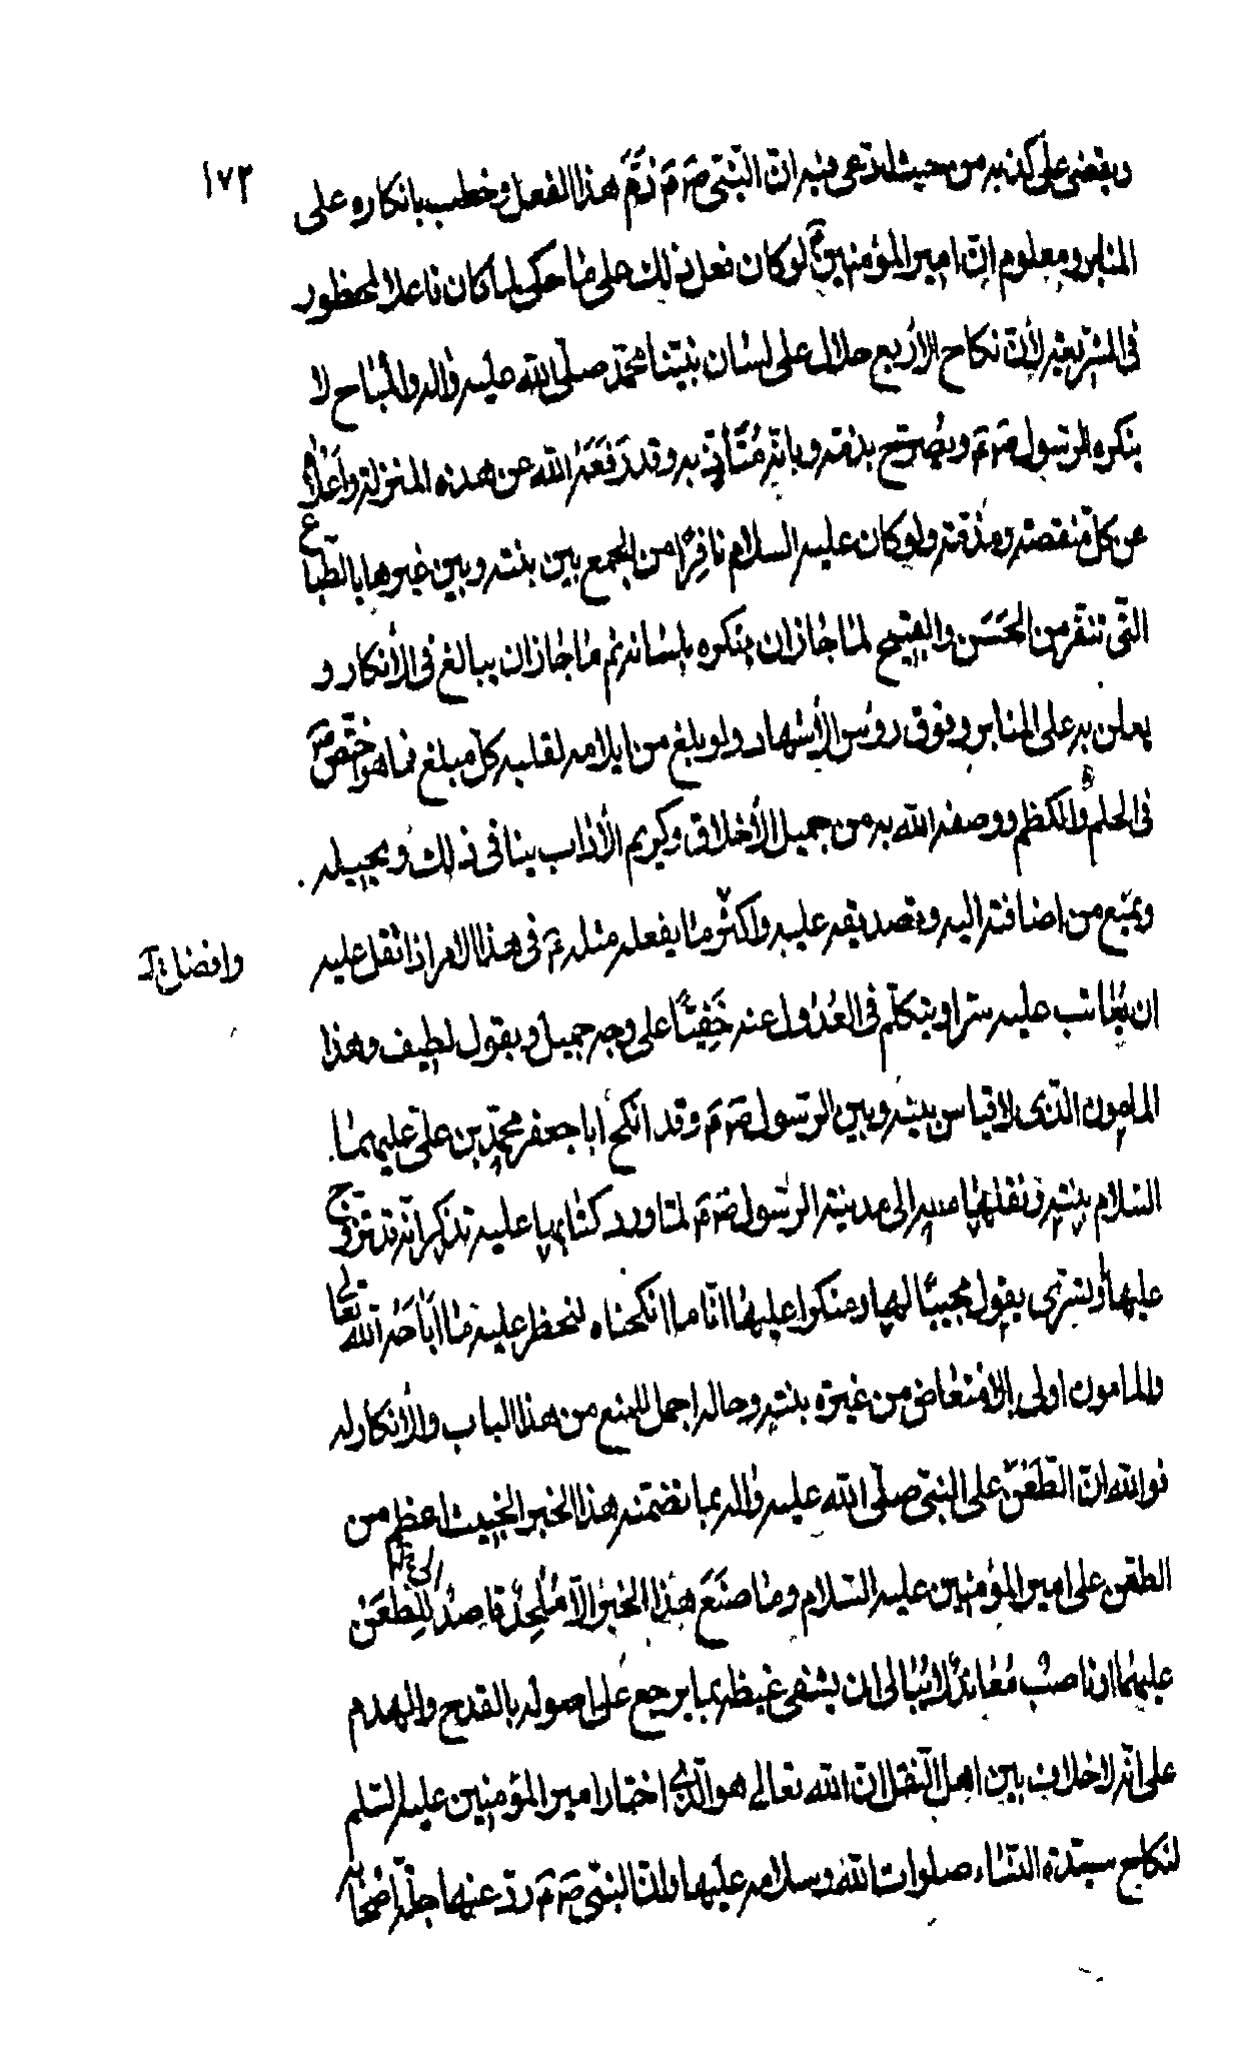 ١٧٣
ويقضى على كذبه من حيث ادعى فيه ان النبّى صَ مَ ذمَّ هذا الفعل وخطب بانكاره على
المنابر ومعلوم انّ امير المؤمنين ع لو كان فعل ذلك على ما حكى لما كان فاعلا لمحظور
فى الشريعة لأنّ نكاح الاربع حلال على لسان نبيّنا محمّد صلّى الله عليه واله والمباح لا
ينكره الرسول صَ مَ ويُصرّح بذمّه وبانّه مُتَأذٍّ به وقد رَفَعَهُ الله عن هذه المنزلة واعَلاهُ
عن كلّ منقصة ومذمّة ولو كان عليه السلام نافِرًا من الجمع بين بنته وبين غيرها بالطّباع
التّى تنفر من الحَسَن والقبيح لما جاز ان ينكره بلسانه ثم ما جاز ان يبالغ فى الأنكار و
يعلن به على المنابر وفوق رؤس الأشهاد ولو بلغ من ايلامه لقلبه كلّ مبلغ فما هو اختصّ به
فى الحلم والكظم ووصفه الله به من جميل الأخلاق وكريم الأداب ينافى ذلك ويحيله
ويمنع من اضافته اليه وتصديقه عليه واكثر ما يفعله مثله مَ فى هذا الامر اذا ثقل عليه
وافضل
ان يُعاتب عليه سرا ويتكلّم فى العُدول عنه خَفِيًّا على وجه جميل وبقول لطيف وهذا
المامون الذى لا قياس بينه وبين الرّسول صَ مَ وقد انكح ابا جعفر محمّد بن علىّ عليهما
السّلام بنته ونقلها معه الى مدينة الرسول صَ مَ لمّا ورد كتابها عليه تذكر انّه قد تزوّج
عليها وتسرّى يقول مجيبًا لها ومنكرا عليها انّا ما انكحناه لنحظر عليه ما اَباحَهُ الله تعالى
والمامون اولى بالامتعاض من غيرة بنته وحاله اجمل للمنع من هذا الباب والأنكار له
فوالله انّ الطّعَنَ على النبّى صلّى الله عليه واله بما تضمّنه هذا الخبر الخبيث اعظم من
الطعن على امير المؤمنين عليه السّلام وما صنَعَ هذا الخبر الّا مُلحِدٌ قاصدٌ للِطعَن
عليهما او ناصبٌ مُعاندٌ لا يُبالى ان يشفى غيظه بما يرجع على اصوله بالقدح والهدم
على انّه لا خلاف بين اهل النقل انّ الله تعالى هو الّذى اختار امير المؤمنين عليه السّلم
لنكاح سيّدة النّساء صلوات الله وسلامه عليها وانّ النبّى صَ مَ ردّ عنها جلّة اصحابه